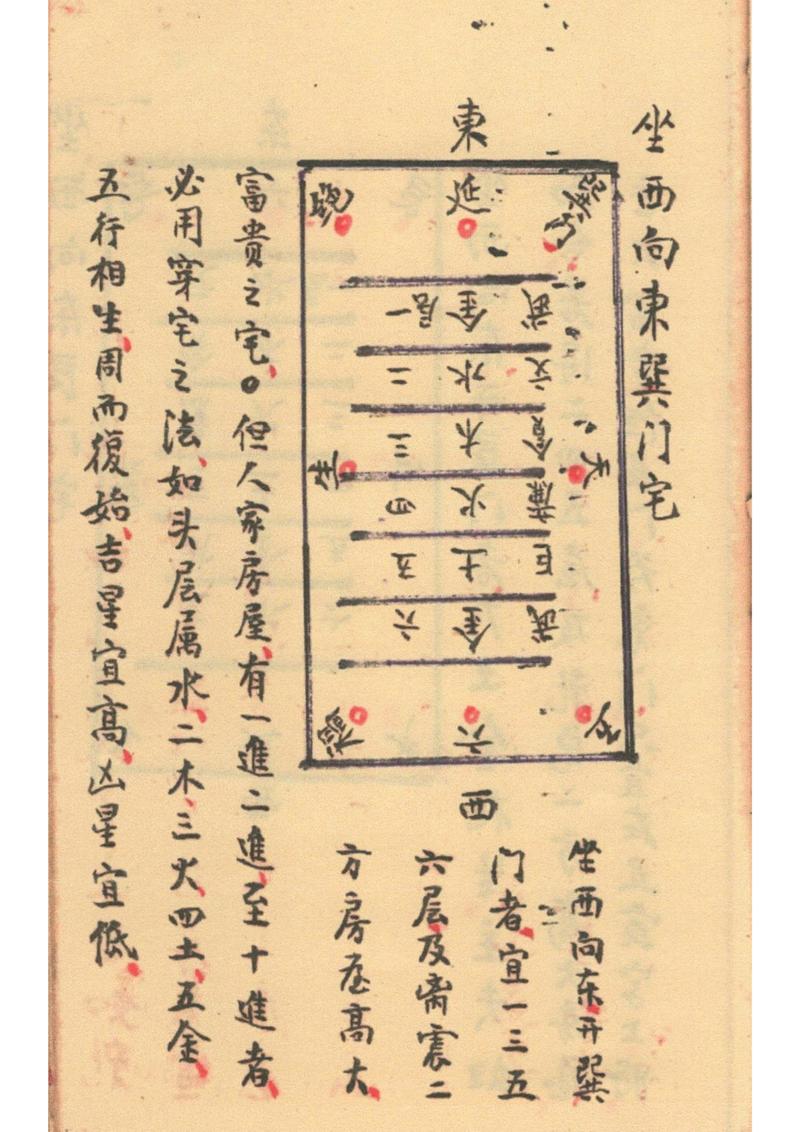 坐西向東巽门宅
東
巽门
延
絕
武 金 一层
文 水 二
貪 木 三
廉 火 四
巨 土 五
武 金 六
天
生
六
禍
西
坐西向东开巽
门者、宜一三五
六层及离震二
方房屋高大、
富貴之宅、。但人家房屋、有一進二進、至十進者、
必用穿宅之法、如头层属水、二木、三火、四土、五金、
五行相生、周而復始、吉星宜高、凶星宜低、